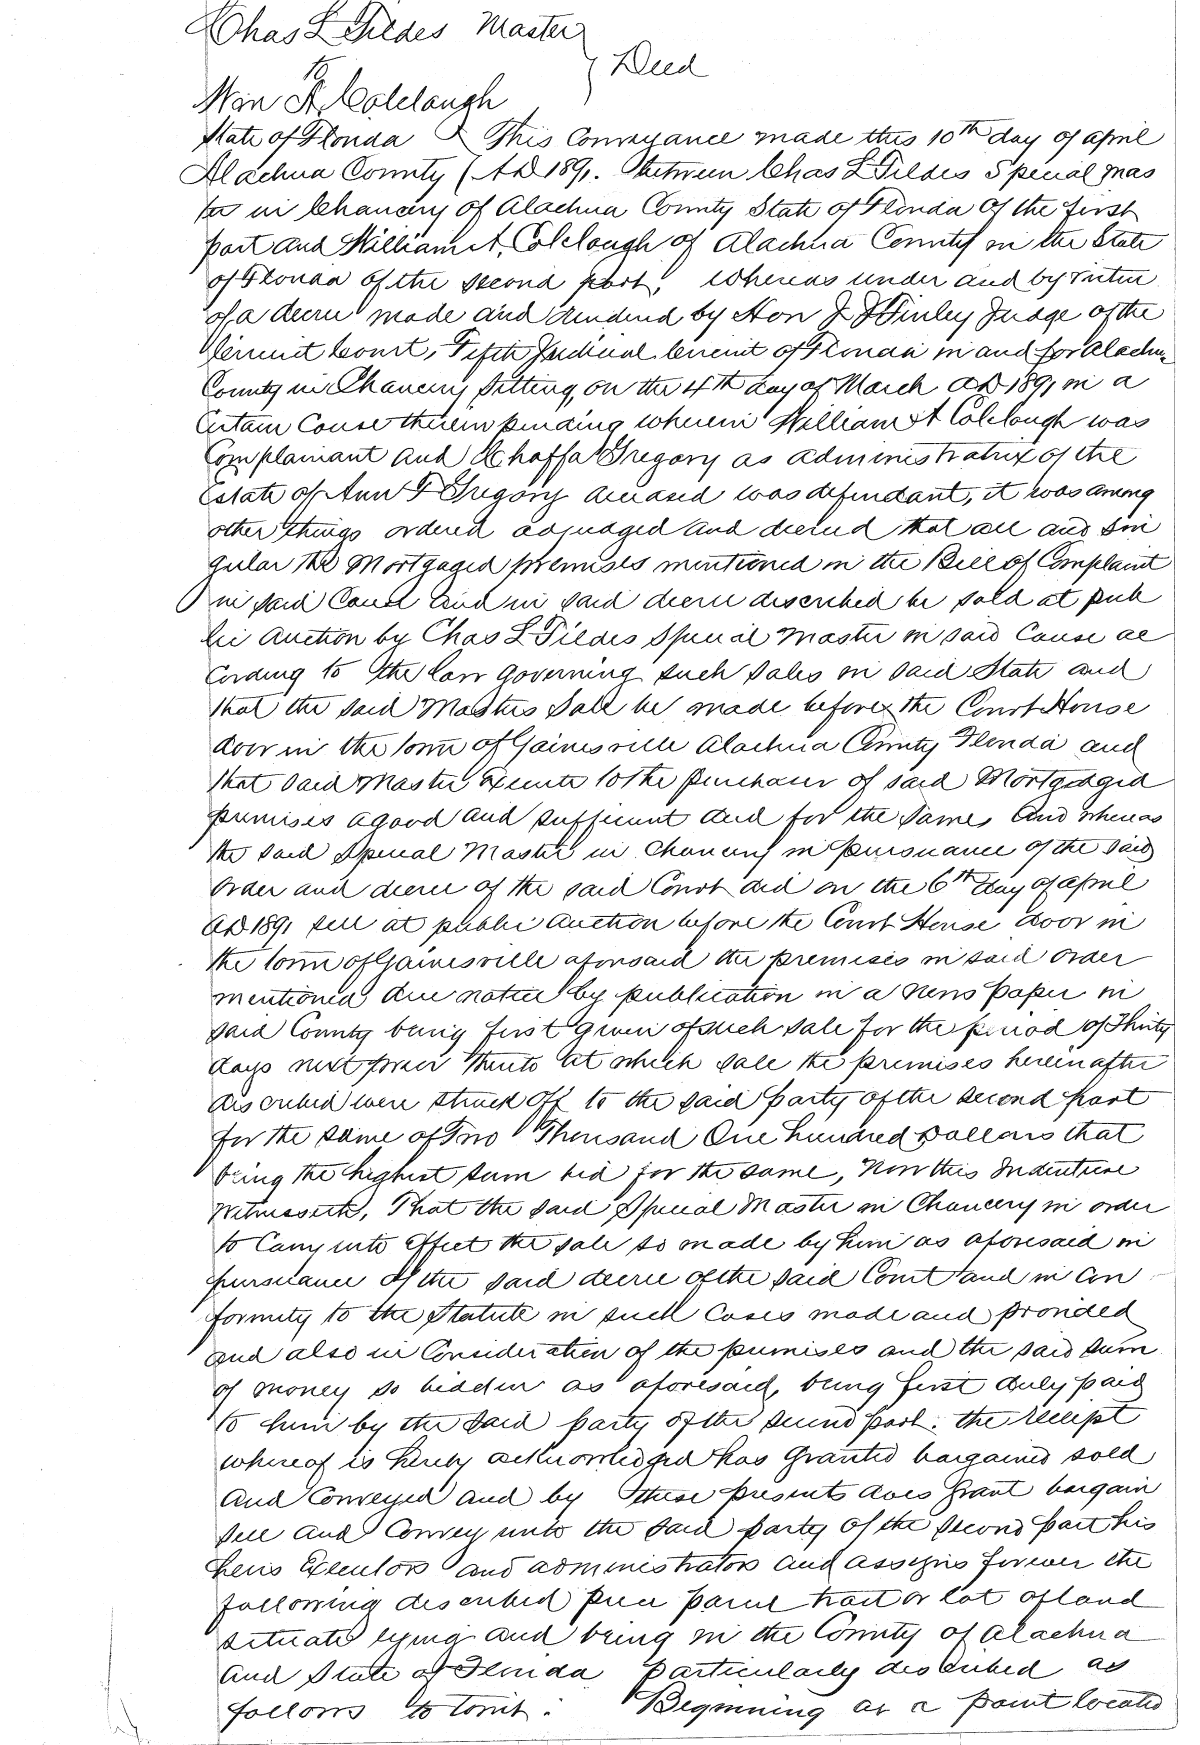 Chas L Fildes Master
to } Deed
Wm A. Colclough
State of Florida } This Conveyance made this 10th day of april
Alachua County ( AD 1891. between Chas L Fildes Special mas
ter in Chancery of Alachua County State of Florida of the first
part and William A. Colclough of Alachua County in the State
of Florida of the second part, Whereas under and by virtue
of a decree made and rendered by Hon J J Finley Judge of the
Circuit Court, Fifth Judicial Circuit of Florida in and for Alachua
County in Chancery sitting, on the 4th day of March AD 1891 in a
Certain Cause therein pending wherein William A Colclough was
Complainant and Gregory as administratrix of the
Estate of Ann F Gregory deceased was defendant, it was among
other things ordered adjudged and decreed that all and sin
gular the Mortgaged premises mentioned in the Bill of Complaint
in said Cause and in said decree described be sold at pub
lic auction by Chas L Fildes Special Master in said Cause ac
cording to the law governing such sales in said State and
that the said Masters Sale be made before the Court House
door in the town of Gainesville Alachua County Florida and
that said Master Execute to the purchaser of said Mortgaged
premises a good and sufficient deed for the same, And whereas
the said Special Master in Chancery in pursuance of the said
order and decree of the said Court did on the 6th day of april
AD 1891 sell at public auction before the Court House door in
the town of Gainesville aforesaid the premises in said order
mentioned due notice by publication in a news paper in
said County being first given of such sale for the period of Thirty
days next prior thereto at which sale the premises hereinafter
described were struck off to the said party of the second part
for the same of Two Thousand One hundred Dollars that
being the highest sum bid for the same, Now this Indenture
Witnesseth, That the said Special Master in Chancery in order
to Carry into effect the sale so made by him as aforesaid in
pursuance of the said decree of the said Court and in con
formity to the Statute in such Cases made and provided
and also in Consideration of the premises and the said sum
of money so bidden as aforesaid, being first duly paid
to him by the said party of the second part: the receipt
whereof is hereby acknowledged has Granted bargained sold
and Conveyed and by these presents does Grant bargain
sell and Convey unto the said party of the second part his
heirs Executors and administrators and assigns forever the
following described piece parcel tract or lot of land
situate lying and being in the County of Alachua
and State of Florida particularly described as
follows to wit: Beginning at a point located